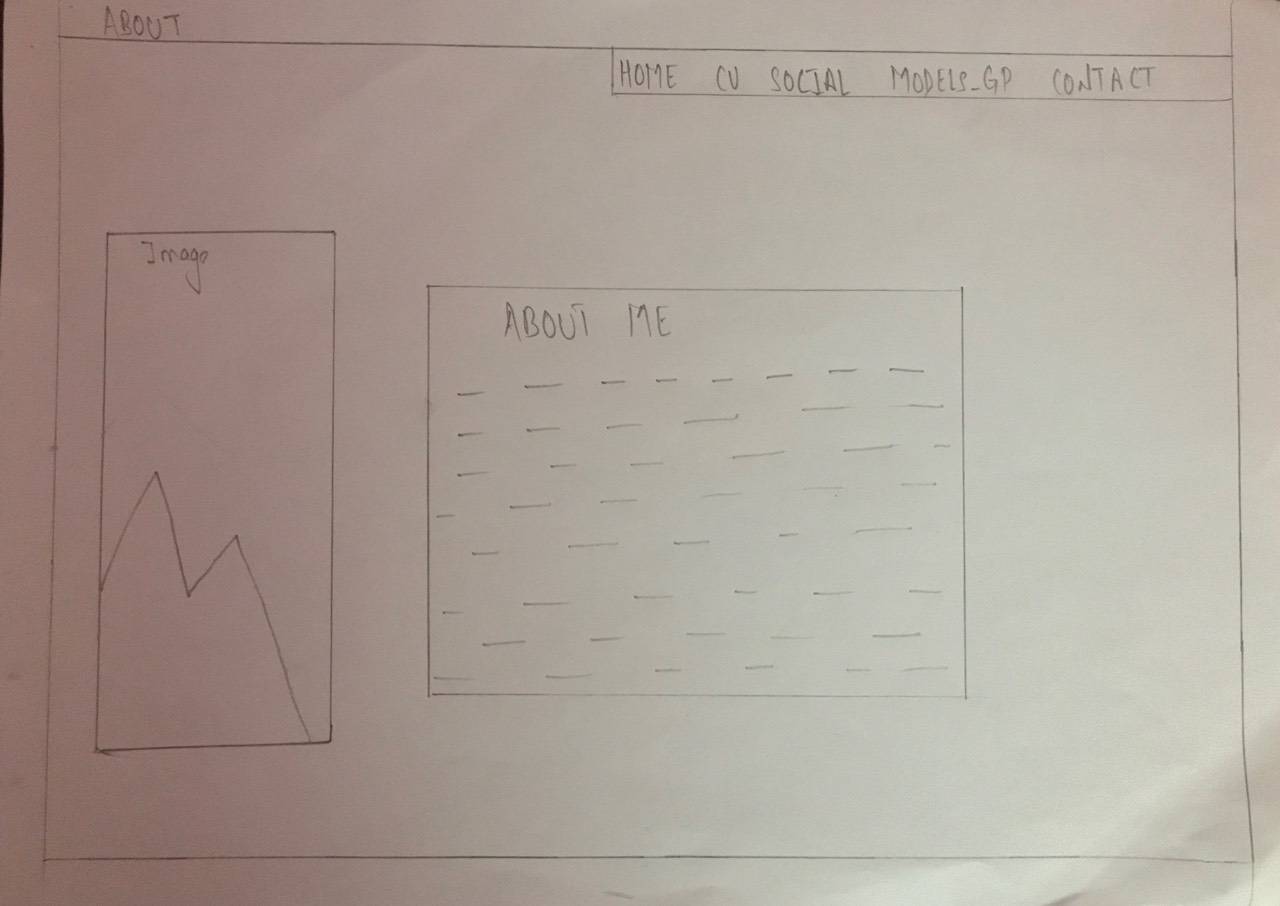 ABOUT
HOME CV SOCIAL MODELS_GP CONTACT
Image
ABOUT ME